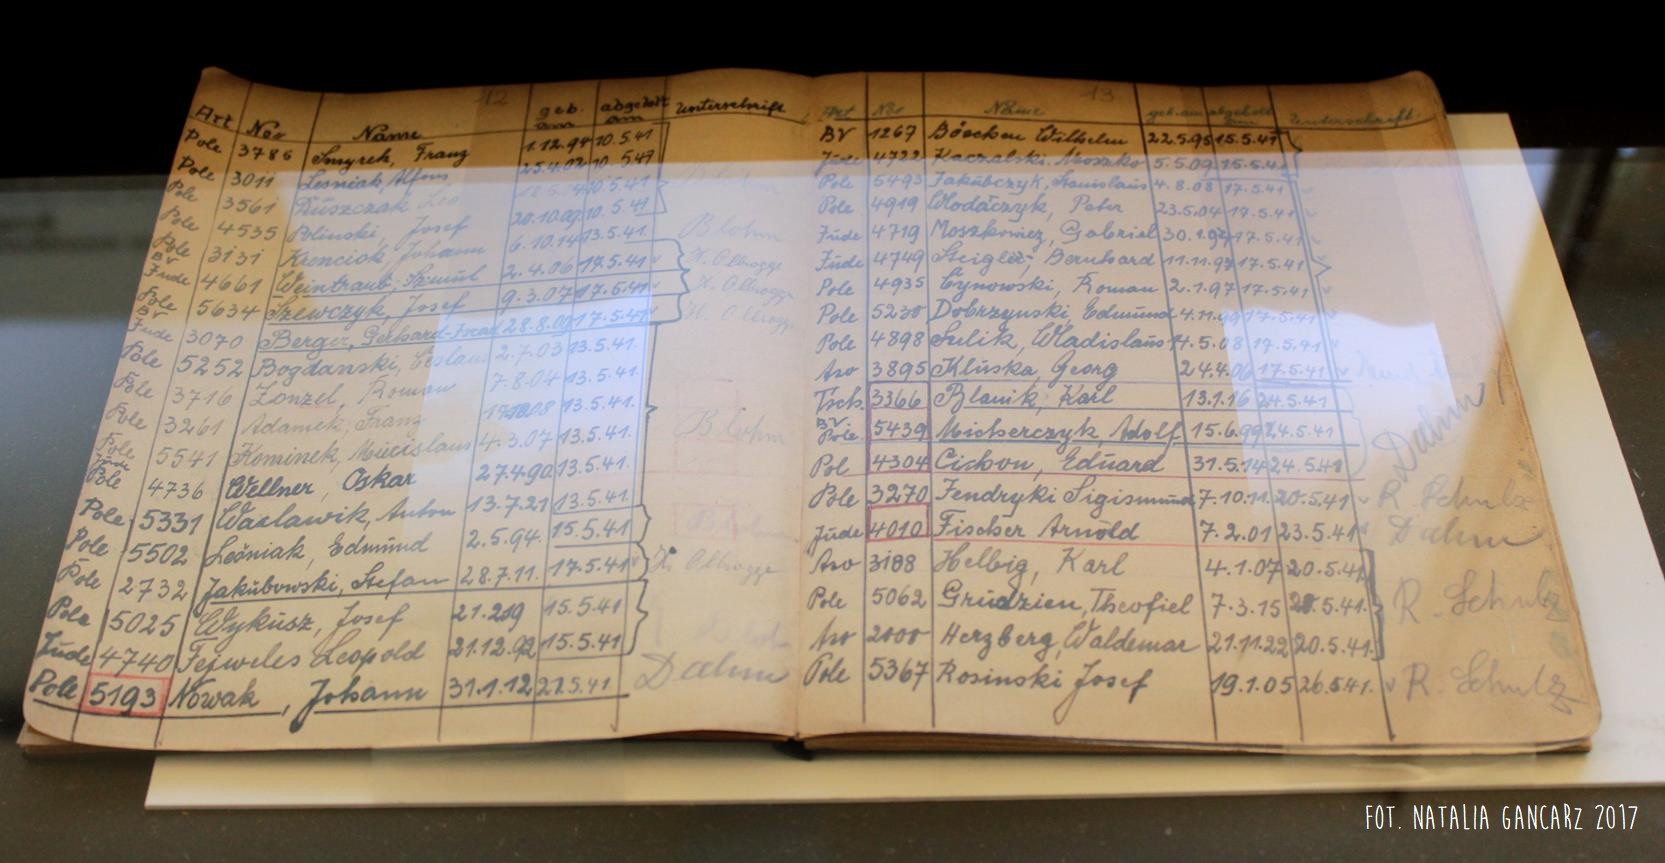 12
Art No. Name geb. am abgeholt am Unterschrift
Pole 3786 Smyrek, Franz 1.12.94 10.5.41
Pole 3011 Lesniak, Alfons 25.4.02 10.5.41
Pole 3561 Duszczak Leo 10.5.41
Pole 4535 Polinski, Josef 20.10.09 10.5.41 Blohm
Pole 3131 Krenciok, Johann 6.10.14 13.5.41
BV Jude 4661 Weintraub, Samuel 2.4.06 17.5.41
Pole 5634 Szewczyk, Josef 9.3.07 17.5.41
BV Jude 3070 Berger, Gerhard-Israel 28.8.09 17.5.41
Pole 5252 Bogdanski, Ceslaus 2.7.03 13.5.41.
Pole 3716 Zonzel, Roman 7.8.04 13.5.41.
Pole 3261 Adamek, Franz 13.5.41.
Pole 5541 Kominek, Miecislaus 4.3.07 13.5.41. Blohm
Jude 4736 Wellner, Oskar 27.4.90 13.5.41.
Pole 5331 Waclawik, Anton 13.7.21 13.5.41.
Pole 5502 Leśniak, Edmund 2.5.94. 15.5.41
Pole 2732 Jakubowski, Stefan 28.7.11. 17.5.41
Pole 5025 Wykusz, Josef 15.5.41
Jude 4740 Fejweles Leopold 21.12.92 15.5.41
Pole 5193 Nowak, Johann 31.1.12 22.5.41 Dahm
13
Art No. Name geb. am abgeholt am Unterschrift
BV 1267 Böscken Wilhelm 22.5.95 15.5.41
Jude 4722 Kaczalski, Moszko 5.5.09 15.5.41
Pole 5493 Jakubczyk, Stanislaus 4.8.08 17.5.41
Pole 4919 Wlodaczyk, Peter 23.5.04 17.5.41
Jude 4719 Moszkowicz, Gabriel 17.5.41
Jude 4749 Steigler, Bernhard 11.11.97 17.5.41
Pole 4935 Cynowski, Roman 2.1.97 17.5.41
Pole 5230 Dobrzynski, Edmund 4.11.99 17.5.41
Pole 4898 Sulik, Wladislaus 17.5.41
Aso 3895 Kluska, Georg 24.4.06 17.5.41
Tsch. 3366 Blanik, Karl 13.1.16 24.5.41
BV. Pole. 5439 Micherczyk, Adolf 15.6.99 24.5.41 Dahm
Pol 4304 Cichon, Eduard 31.5.14 24.5.41
Pole 3270 Fendryki Sigismund 7.10.11. 20.5.41 R. Schulz
Jude 4010 Fischer Arnold 7.2.01 23.5.41 Dahm
Aso 3188 Helbig, Karl 4.1.07 20.5.41
Pole 5062 Grudzien, Theofiel 7.3.15 20.5.41. R. Schulz
Aso 2000 Herzberg, Waldemar 21.11.22 20.5.41.
Pole 5367 Rosinski Josef 19.1.05 26.5.41. R. Schulz
FOT. NATALIA GANCARZ 2017